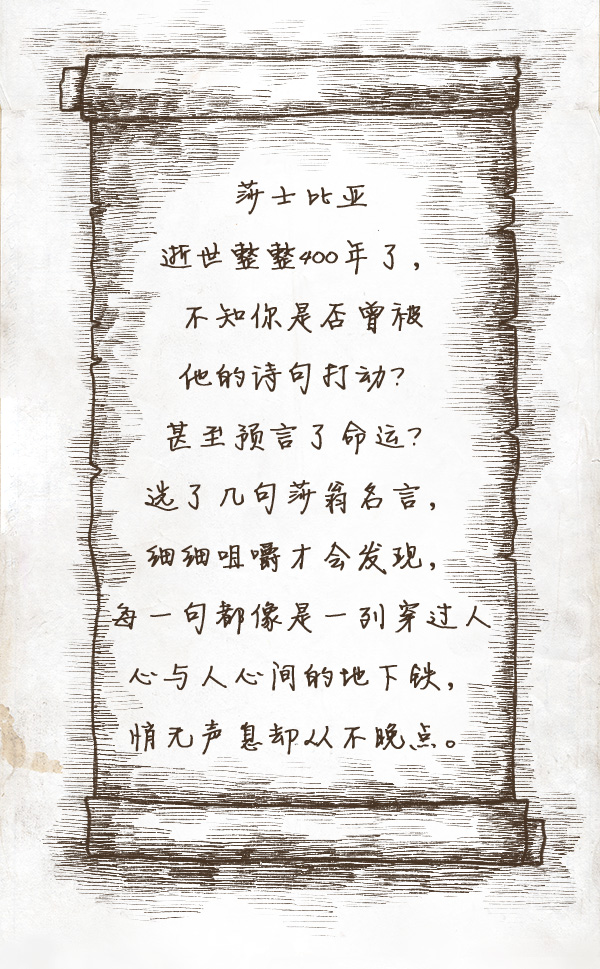 莎士比亚
逝世整整400年了，
不知你是否曾被
他的诗句打动？
甚至预言了命运？
选了几句莎翁名言，
细细咀嚼才会发现，
每一句都像是一列穿过人
心与人心间的地下铁，
悄无声息却从不晚点。